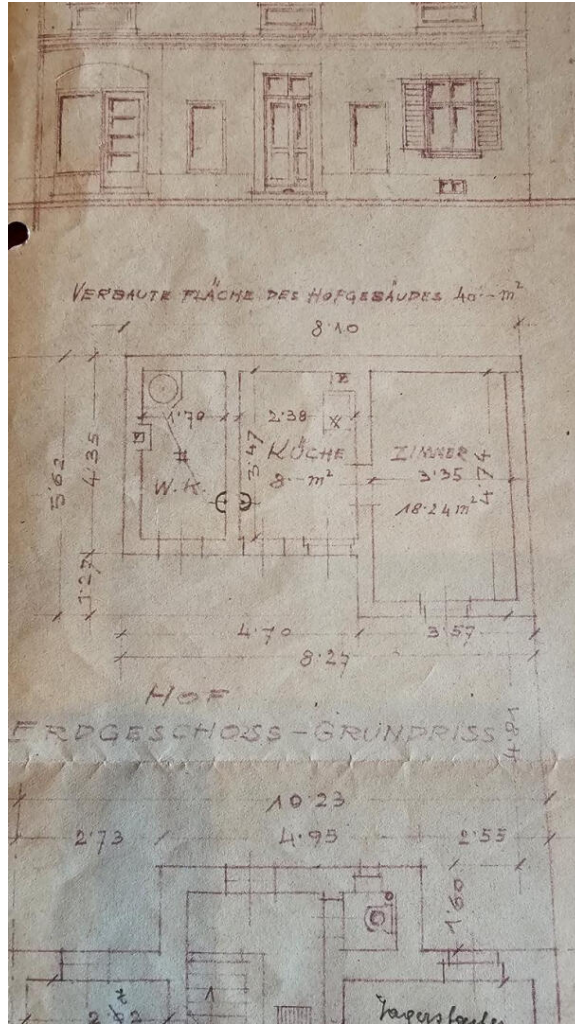 VERBAUTE FLÄCHE DES HOFGEBÄUDES 40·- m²
8·10
1·70
2·38
KÜCHE
8·- m²
3·47
W.K.
ZIMMER
3·35
18·24 m²
4·74
5·62
4·35
1·27
4·70
3·57
8·27
HOF
ERDGESCHOSS-GRUNDRISS
4·81
10·23
2·73
4·95
2·55
1·60
1